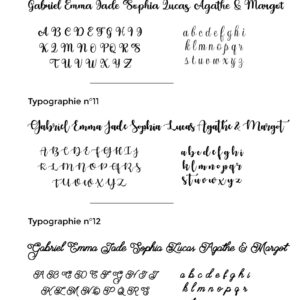 Gabriel Emma Jade Sophia Lucas Agathe & Margot
A B C D E F G H I J
K L M N O P Q R S
T U V W X Y Z
a b c d e f g h i j
k l m n o p q r
s t u v w x y z
Typographie n°11
Gabriel Emma Jade Sophia Lucas Agathe & Margot
A B C D E F G H I J
K L M N O P Q R S
T U V W X Y Z
a b c d e f g h i
k l m n o p q r
s t u v w x y z
Typographie n°12
Gabriel Emma Jade Sophia Lucas Agathe & Margot
A B C D E F G H I J
K L M N O P Q R S
a b c d e f g h i
k l m n o p q r